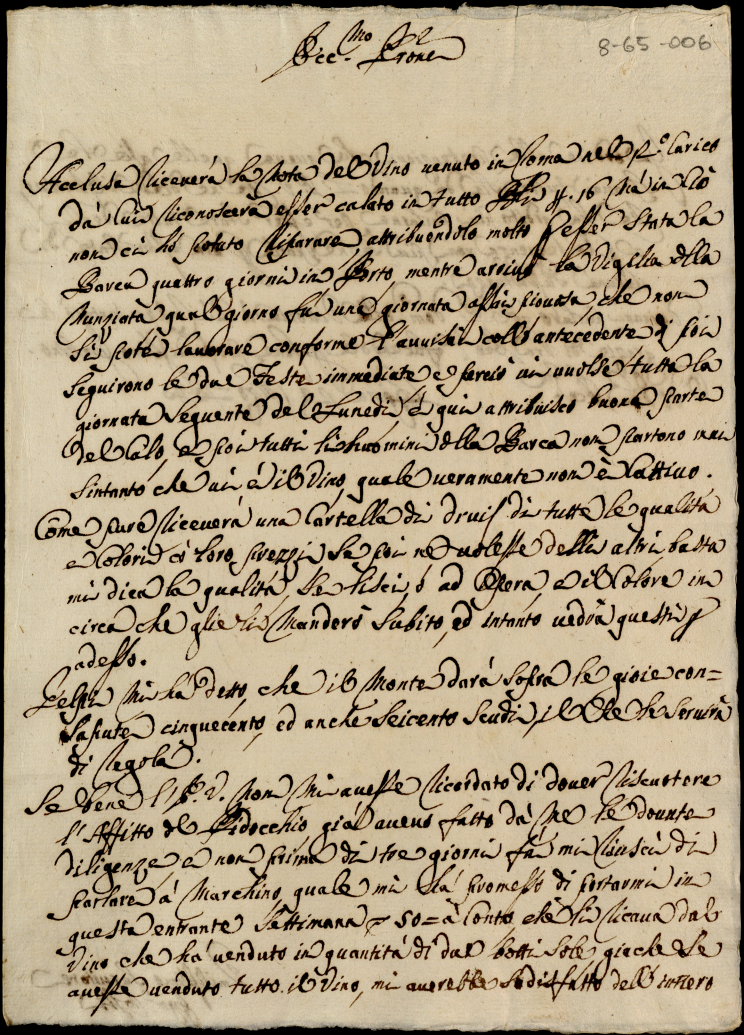 Ecc.mo Prone
8-65-006
Acclusa riceverà la Nota del Vino venuto in Roma nel p.o Carico
dà lui riconoscerà esser calato in tutto 16 Mà in ciò
non ci hò potuto riparare, attribuendolo molto p esser stata la
Barca quattro giorni in Porto, mentre arrivò la Vigilia della
Nunziata qual giorno fù una giornata assai piovosa che non
si potè lavorare conforme l'avvisai coll'antecedente, di poi
seguirono le due Feste immediate e perciò vi volse tutta la
giornata seguente del Lunedì, e quì attribuisco buona parte
del Calo, e poi tutti li huomini della Barca non partono mai
sintanto che vi è il Vino, quale veramente non è Cattivo.
Come pure riceverà una Cartella di di tutte le qualità
e Colori cò loro prezzi, se poi ne volesse delli altri basta
mi dica la qualità, se lisci, ò ad Opera, e il Colore in
circa che glie li Manderò subito, ed intanto vedrà questi p
adesso.
Pelpi Mi hà detto, che il Monte darà sopra le gioie con=
sapute cinquecento, ed anche seicento scudi, il che le servirà
di regola.
Se bene l'P. V. Non Mi avesse ricordato di dover riscuotere
l'Affitto del Pidocchio già avevo fatto dà Me le dovute
diligenze, e non prima di tre giorni fà mi riuscì di
parlare à Marchino, quale mi hà promesso di portarmi in
questa entrante settimana 50= à Conto chè li ricava dal
Vino che hà venduto in quantità di due botti sole, giache se
avesse venduto tutto il Vino, mi averebbe sodisfatto dell'intiero